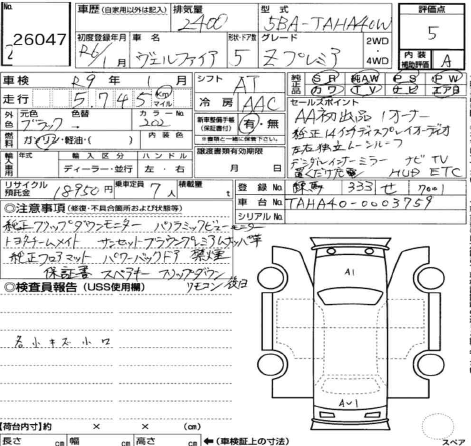 26047
車歴 (自家用以外は記入)
排気量 2400
型式 5BA-TAHA40W
評価点 5
初度登録年月 R6/1月
車名 ヴェルファイア
形状・ドア数 5
グレード Zプレミア
2WD・4WD
内装補助評価 A
車検 R9年1月
シフト AT
走行 5,745 Km マイル
冷房 AAC
純正品 SR 純AW PS PW カワ TV ナビ エアB
外色 元色 ブラック 色替
カラーNo 202
内装色
新車整備手帳(保証書付) 有・無
※書類と一緒に保管下さい。
燃料 ガソリン・軽油・( )
セールスポイント
AA初出品 1オーナー
純正14インチディスプレイオーディオ
左右独立ムーンルーフ
デジタルインナーミラー ナビ TV
置くだけ充電 HUD ETC
輸入車用 年式 輸入区分 ディーラー・並行 ハンドル 左・右
譲渡書類有効期限 月 日
リサイクル預託金 18950円
乗車定員 7人
積載量 t
登録No 練馬 333 せ 7001
車台No TAHA40-0003959
シリアルNo
◎注意事項(修復・不具合箇所および状態等)
純正フリップダウンモニター パノラミックビューモニター
トヨタチームメイト サンセットブラウンプレミアムナッパ革
純正フロアマット パワーバックドア 禁煙
保証書 スペアキー フリップダウン
リモコン後日
◎検査員報告(USS使用欄)
各小キズ小ロ
A1
AU1
【荷台内寸】約 × × (cm)
長さ cm 幅 cm 高さ cm
←(車検証上の寸法)
スペア